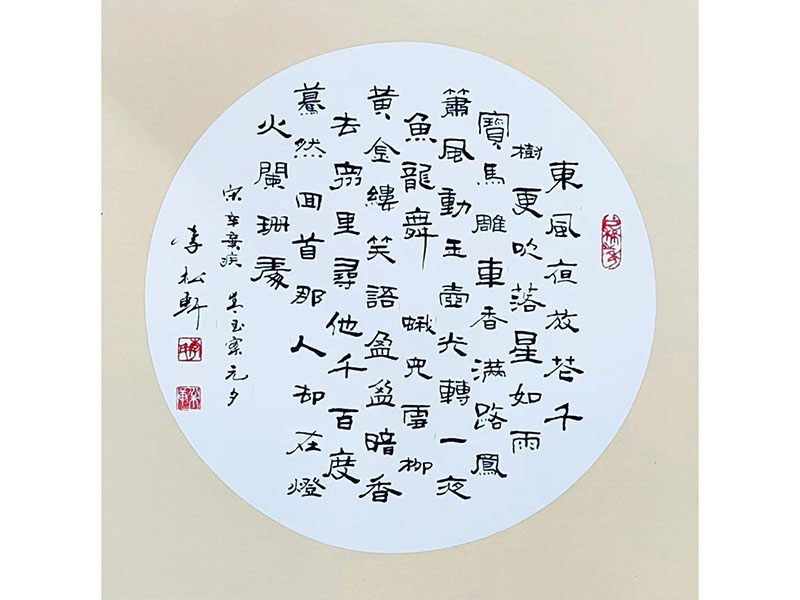 東風夜放花千
樹更吹落星如雨
寶馬雕車香滿路鳳
簫風動玉壺光轉一夜
魚龍舞 蛾兒雪柳
黃金縷笑語盈盈暗香
去眾里尋他千百度
驀然回首那人却在燈
火闌珊處
宋辛棄疾 青玉案元夕
李松軒